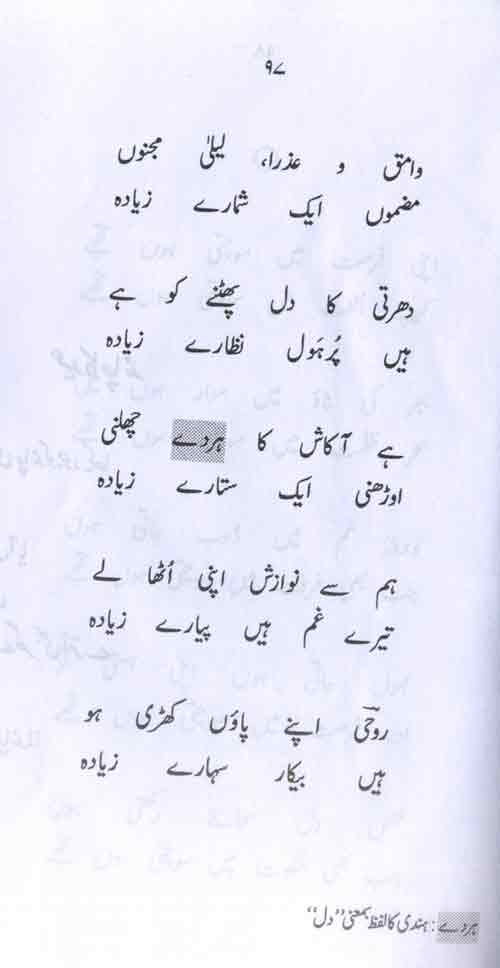 ۹۷
وامق و عذرا، لیلیٰ مجنوں
مضموں ایک شمارے زیادہ
دھرتی کا دل پھٹنے کو ہے
ہیں پُرہَول نظارے زیادہ
ہے آکاش کا ہردے چھلنی
اوڑھنی ایک ستارے زیادہ
ہم سے نوازش اپنی اُٹھا لے
تیرے غم ہیں پیارے زیادہ
روحیؔ اپنے پاؤں کھڑی ہو
ہیں بیکار سہارے زیادہ
ہردے: ہندی کا لفظ بمعنی ”دل“